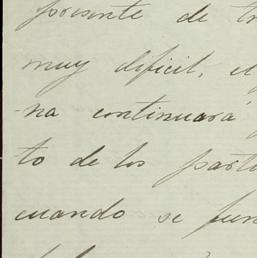 presente de tr
muy dificil, el
-na continuará
to de los parti
cuando se fun